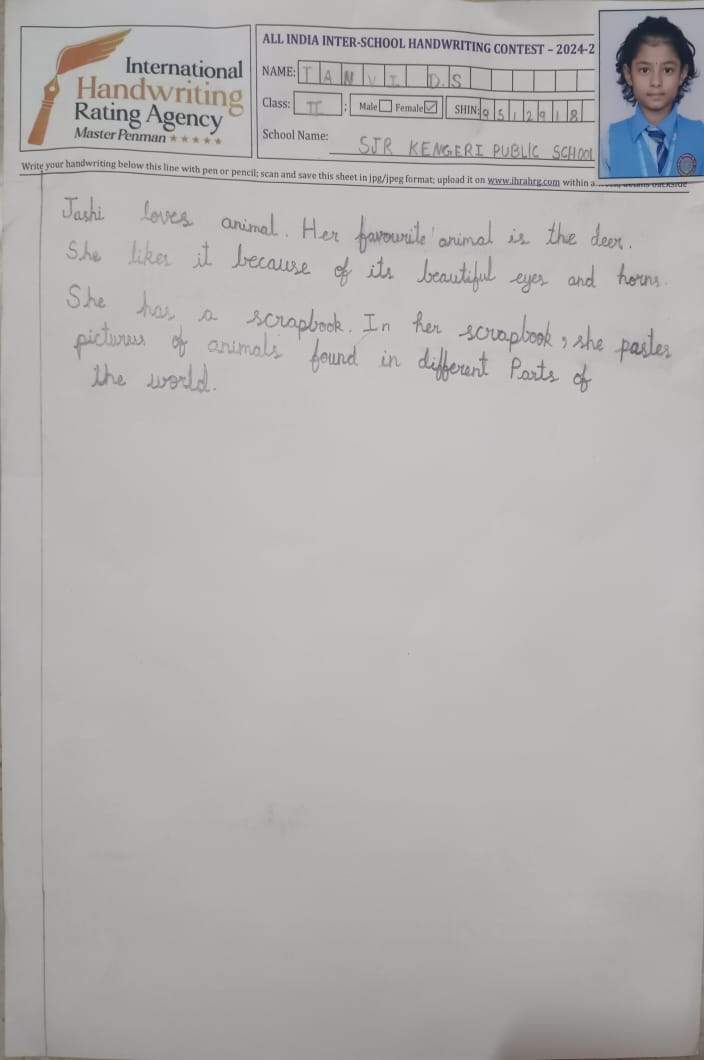 International
Handwriting
Rating Agency
Master Penman
ALL INDIA INTER-SCHOOL HANDWRITING CONTEST – 2024-2
NAME: TANVI D.S
Class: II ; Male Female ✓ SHIN: 9512918
School Name: SJR KENGERI PUBLIC SCHOOL
Write your handwriting below this line with pen or pencil; scan and save this sheet in jpg/jpeg format; upload it on www.ihrahrg.com within a
Jashi loves animal. Her favourite animal is the deer.
She likes it because of its beautiful eyes and horns.
She has a scrapbook. In her scrapbook, she pastes
pictures of animals found in different Parts of
the world.